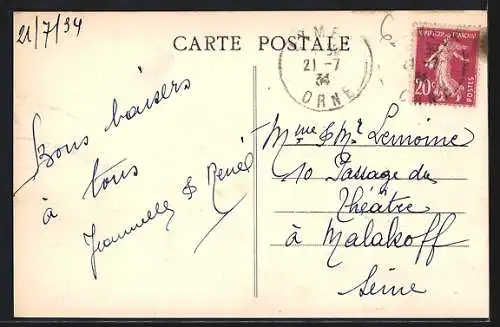 21/7/34
CARTE POSTALE
21-7
34
ORNE
REPUBLIQUE FRANÇAISE
20c
POSTES
Bons baisers
à
tous
Jeannette & René
Mme & Mr Lemoine
10 Passage du
Théâtre
à Malakoff
Seine